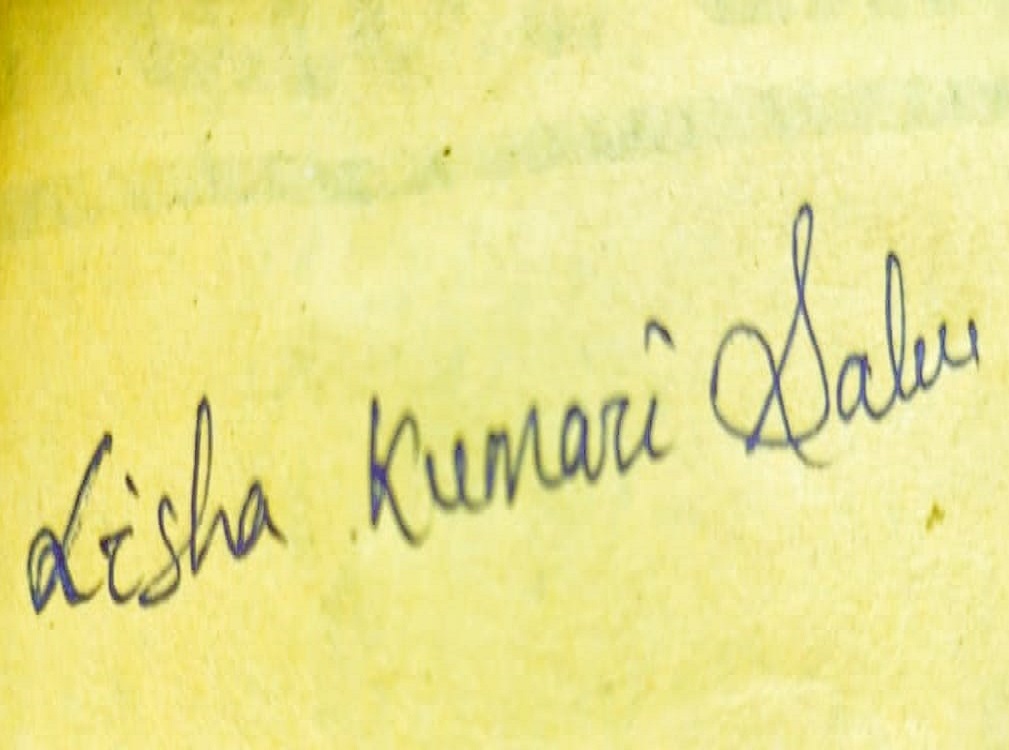 Lisha Kumari Sahu